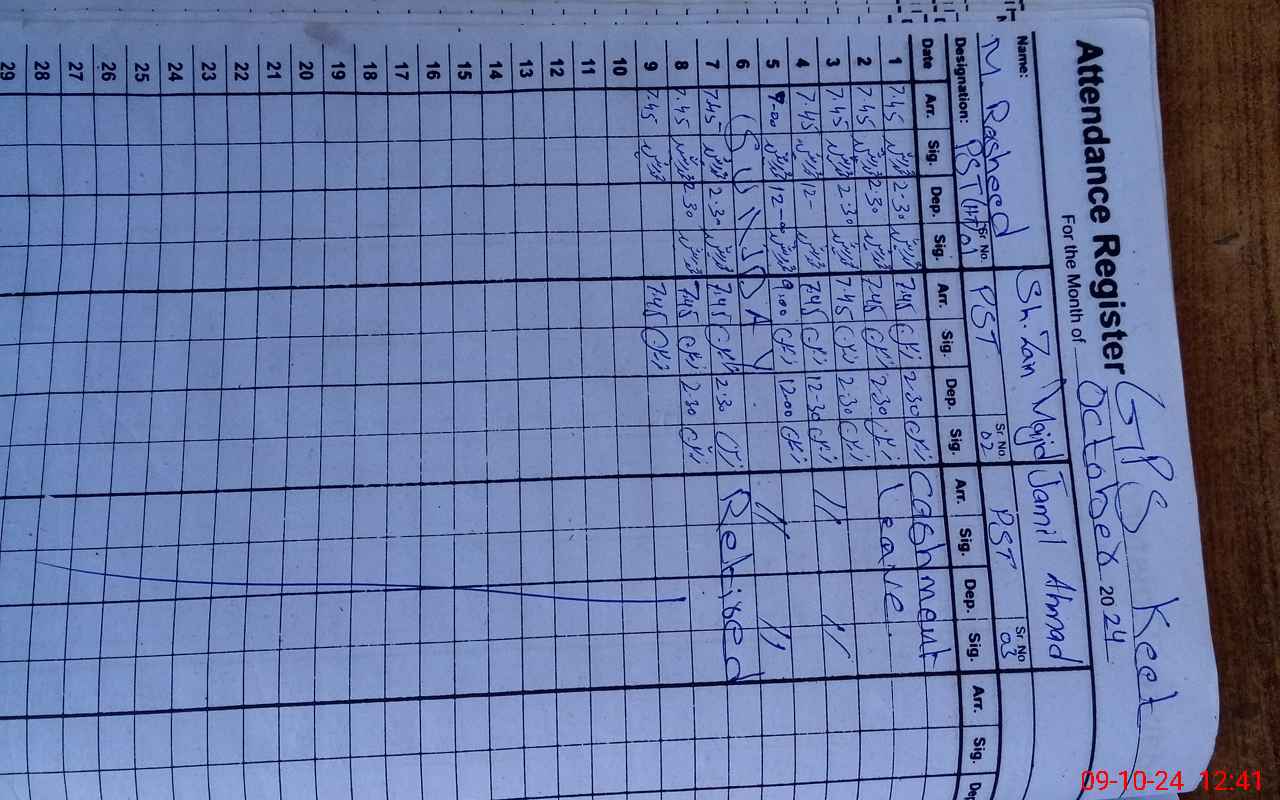 GPS Keet
Attendance Register
For the Month of October 2024
Name: M. Rasheed Sh. Zan Majid Jamil Ahmad
Designation: PST (HT) Sr No. 01 PST Sr No 02 PST Sr No 03
Date Arr. Sig. Dep. Sig. Arr. Sig. Dep. Sig. Arr. Sig. Dep. Sig. Arr. Sig. Dep
1 7.45 2.30 7.45 2.30 Cashment
2 7.45 2.30 7.45 2.30 Leave
3 7.45 2.30 7.45 2.30 // //
4 7.45 12- 7.45 12-30
5 9-00 12-00 9:00 12:00 // //
6 (SUNDAY)
7 7.45 2.30 7.45 2.30 Relived
8 7.45 2.30 7.45 2.30
9 7.45 7.45
10
11
12
13
14
15
16
17
18
19
20
21
22
23
24
25
26
27
28
29
09-10-24 12:41